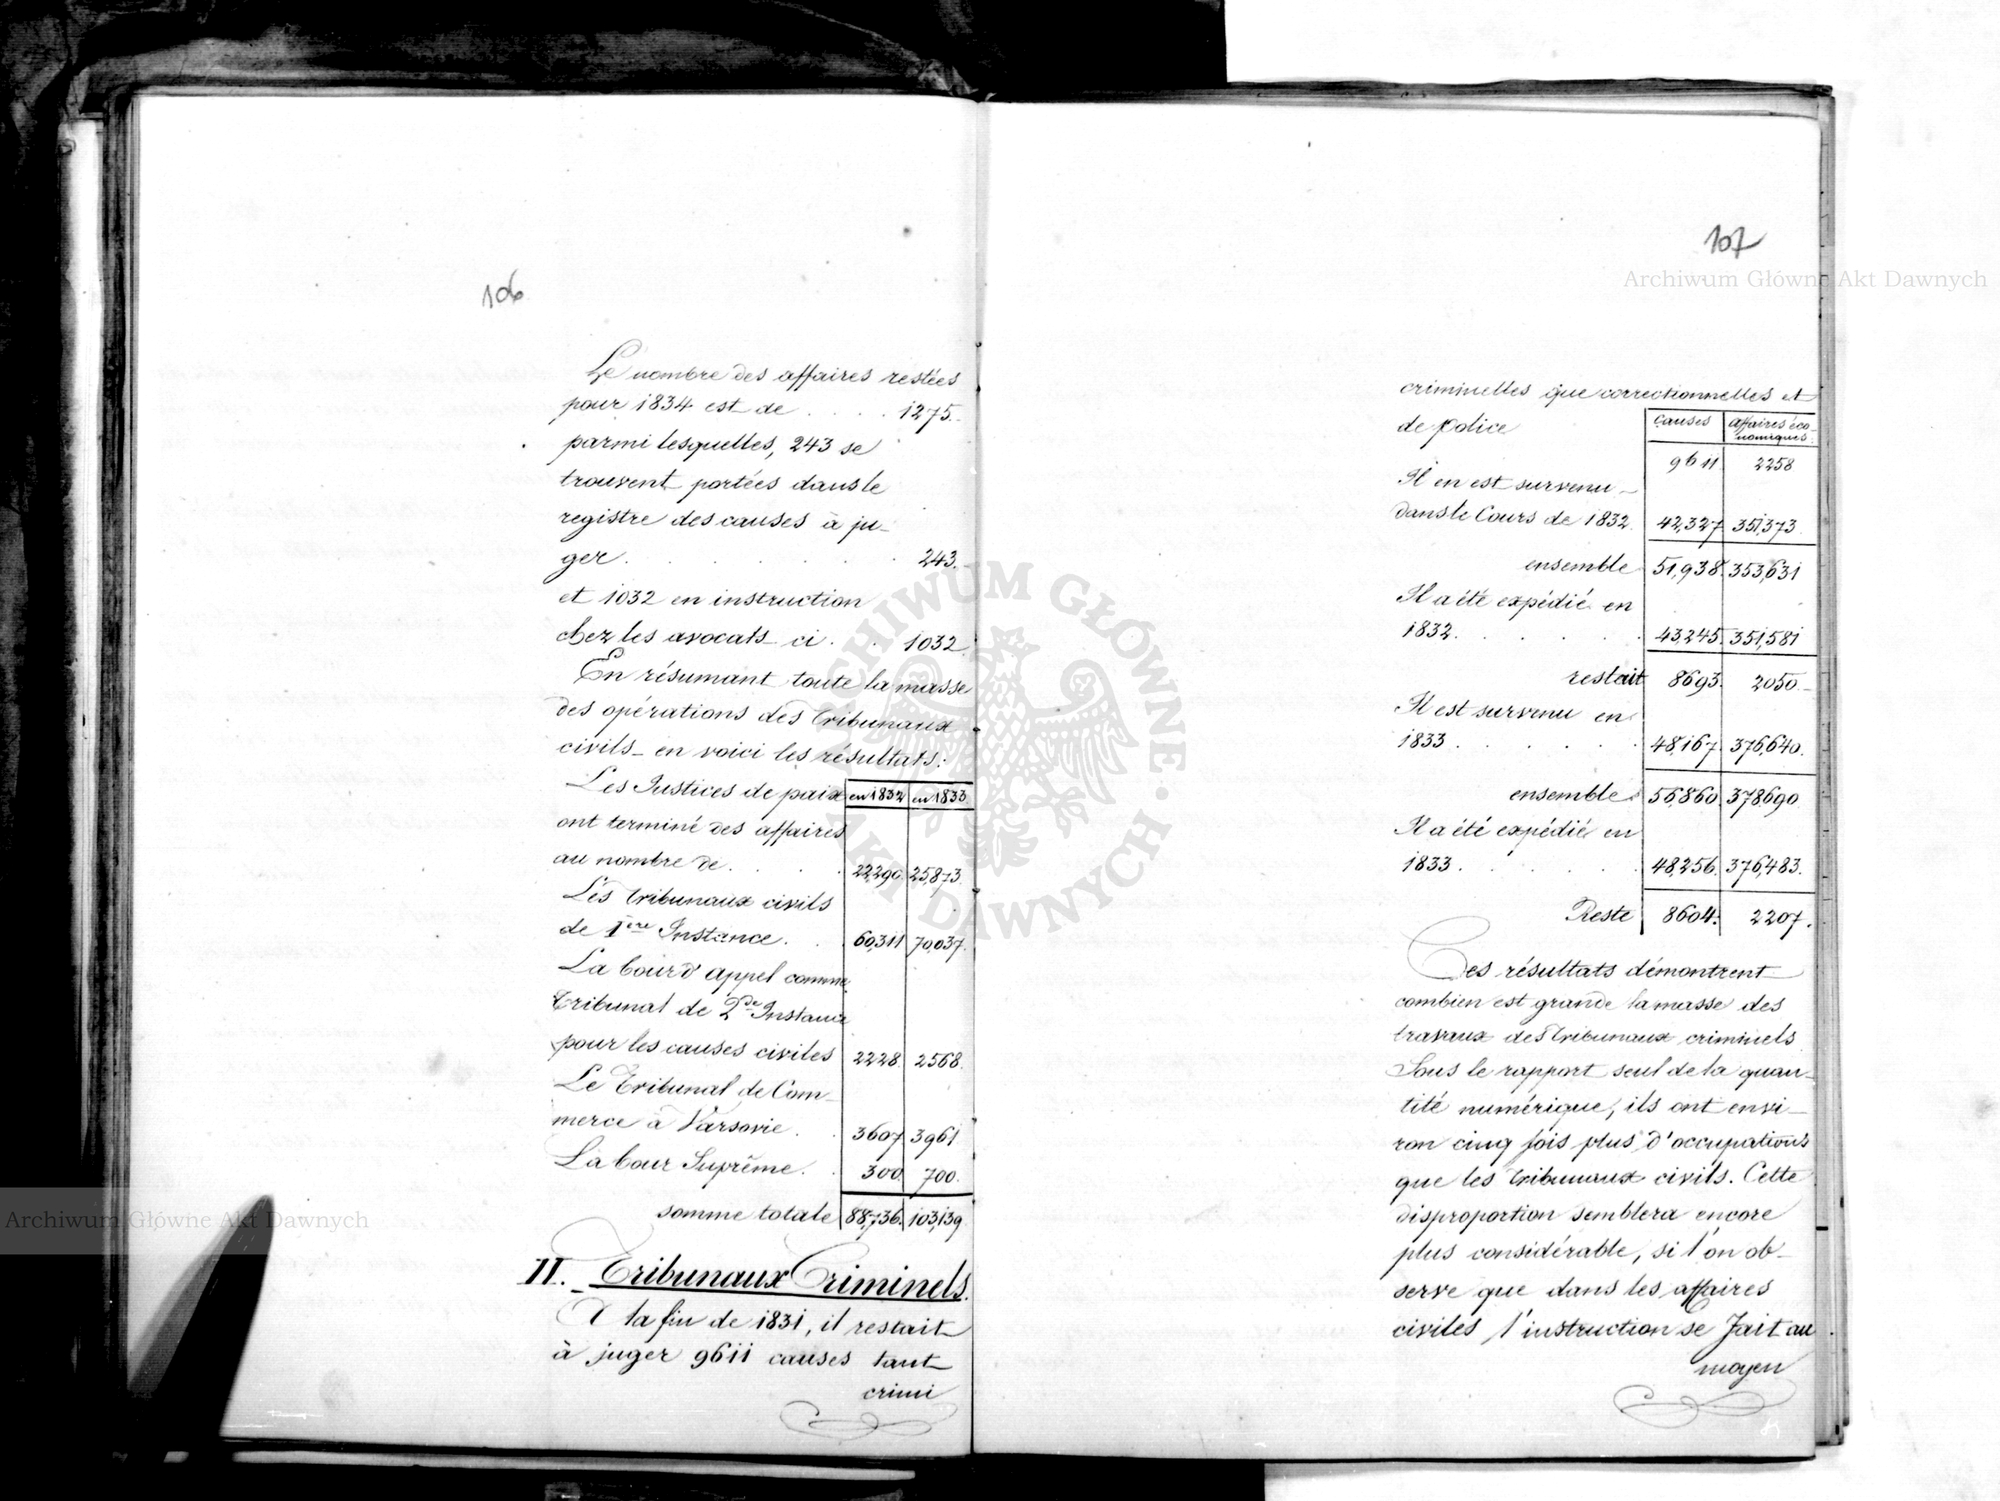 106
Le nombre des affaires restées
pour 1834 est de . . . . 1275.
parmi lesquelles, 243 se
trouvent portées dans le
registre des causes à ju-
ger . . . . . . . 243.
et 1032 en instruction
chez les avocats ci . . 1032.
En résumant toute la masse
des opérations des tribunaux
civils en voici les résultats:
Les Justices de paix en 1832 en 1833
ont terminé des affaires
au nombre de . . . . 22,290. 25,873.
Les tribunaux civils
de 1ère Instance . . 60,311 70,037.
La Cour d'appel comme
tribunal de 2de Instance
pour les causes civiles 2228. 2568.
Le Tribunal de Com-
merce à Varsovie . . 3607 3961
La Cour Suprême . . 300. 700.
somme totale 88,736. 103,139.
II. Tribunaux Criminels.
A la fin de 1831, il restait
à juger 9611 causes tant
crimi
107
criminelles que correctionnelles et
de police causes affaires éco-
nomiques.
9611. 2258
Il en est survenu
dans le Cours de 1832. 42,327 351,373
ensemble 51,938. 353,631
Il a été expédié en
1832. . . . . . 43,245. 351,581
restait 8693. 2050.
Il est survenu en
1833 . . . . . 48,167 376,640.
ensemble 56,860. 378690
Il a été expédié en
1833 . . . . . 48,256. 376,483.
Reste 8604. 2207.
Ces résultats démontrent
combien est grande la masse des
travaux des tribunaux criminels
Sous le rapport seul de la quan-
tité numérique, ils ont envi-
ron cinq fois plus d'occupations
que les tribunaux civils. Cette
disproportion semblera encore
plus considérable, si l'on ob-
serve que dans les affaires
civiles l'instruction se fait au
moyen
ARCHIWUM GŁÓWNE AKT DAWNYCH
Archiwum Główne Akt Dawnych
Archiwum Główne Akt Dawnych